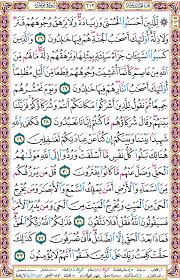 لِّلَّذِينَ أَحْسَنُوا۟ ٱلْحُسْنَىٰ وَزِيَادَةٌ ۖ وَلَا يَرْهَقُ وُجُوهَهُمْ قَتَرٌ
وَلَا ذِلَّةٌ ۚ أُو۟لَـٰٓئِكَ أَصْحَـٰبُ ٱلْجَنَّةِ ۖ هُمْ فِيهَا خَـٰلِدُونَ ٢٦ وَٱلَّذِينَ
كَسَبُوا۟ ٱلسَّيِّـَٔاتِ جَزَآءُ سَيِّئَةٍۭ بِمِثْلِهَا وَتَرْهَقُهُمْ ذِلَّةٌ ۖ مَّا لَهُم
مِّنَ ٱللَّهِ مِنْ عَاصِمٍ ۖ كَأَنَّمَآ أُغْشِيَتْ وُجُوهُهُمْ قِطَعًا مِّنَ ٱلَّيْلِ مُظْلِمًا ۚ
أُو۟لَـٰٓئِكَ أَصْحَـٰبُ ٱلنَّارِ ۖ هُمْ فِيهَا خَـٰلِدُونَ ٢٧ وَيَوْمَ نَحْشُرُهُمْ
جَمِيعًا ثُمَّ نَقُولُ لِلَّذِينَ أَشْرَكُوا۟ مَكَانَكُمْ أَنتُمْ وَشُرَكَآؤُكُمْ ۚ فَزَيَّلْنَا
بَيْنَهُمْ ۖ وَقَالَ شُرَكَآؤُهُم مَّا كُنتُمْ إِيَّانَا تَعْبُدُونَ ٢٨ فَكَفَىٰ بِٱللَّهِ
شَهِيدًۢا بَيْنَنَا وَبَيْنَكُمْ إِن كُنَّا عَنْ عِبَادَتِكُمْ لَغَـٰفِلِينَ ٢٩
هُنَالِكَ تَبْلُوا۟ كُلُّ نَفْسٍ مَّآ أَسْلَفَتْ ۚ وَرُدُّوٓا۟ إِلَى ٱللَّهِ مَوْلَىٰهُمُ
ٱلْحَقِّ ۖ وَضَلَّ عَنْهُم مَّا كَانُوا۟ يَفْتَرُونَ ٣٠ قُلْ مَن يَرْزُقُكُم
مِّنَ ٱلسَّمَآءِ وَٱلْأَرْضِ أَمَّن يَمْلِكُ ٱلسَّمْعَ وَٱلْأَبْصَـٰرَ وَمَن يُخْرِجُ
ٱلْحَىَّ مِنَ ٱلْمَيِّتِ وَيُخْرِجُ ٱلْمَيِّتَ مِنَ ٱلْحَىِّ وَمَن يُدَبِّرُ ٱلْأَمْرَ ۚ
فَسَيَقُولُونَ ٱللَّهُ ۚ فَقُلْ أَفَلَا تَتَّقُونَ ٣١ فَذَٰلِكُمُ ٱللَّهُ رَبُّكُمُ ٱلْحَقُّ ۖ
فَمَاذَا بَعْدَ ٱلْحَقِّ إِلَّا ٱلضَّلَـٰلُ ۖ فَأَنَّىٰ تُصْرَفُونَ ٣٢ كَذَٰلِكَ
حَقَّتْ كَلِمَتُ رَبِّكَ عَلَى ٱلَّذِينَ فَسَقُوٓا۟ أَنَّهُمْ لَا يُؤْمِنُونَ ٣٣